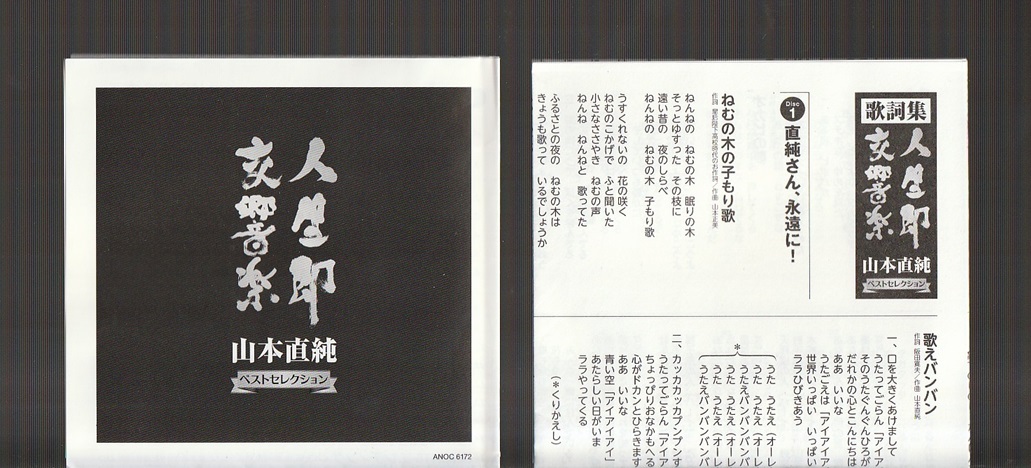 人生即
交響音楽
山本直純
ベストセレクション
ANOC 6172
歌詞集
人生即
交響音楽
山本直純
ベストセレクション
Disc 1
直純さん、永遠に！
ねむの木の子もり歌
作詞 皇后陛下高校時代のお作詞／作曲 山本正美
ねんねの ねむの木 眠りの木
そっとゆすった その枝に
遠い昔の 夜のしらべ
ねんねの ねむの木 子もり歌
うすくれないの 花の咲く
ねむのこかげで ふと聞いた
小さなささやき ねむの声
ねんね ねんねと 歌ってた
ふるさとの夜の ねむの木は
きょうも歌って いるでしょうか
歌えバンバン
作詞 阪田寛夫／作曲 山本直純
一、口を大きくあけまして
うたってごらん「アイア
そのうたぐんぐんひろが
だれかの心とこんにちは
ああ いいな
うたごえは「アイアイア
世界いっぱい いっぱい
ララひびきあう
＊
うた うたえ（オーレ
うた うたえ（オーレ
うたえバンバンバンバ
うた うたえ（オーレ
うた うたえ（オーレ
うたえバンバンバンバ
二、カッカカッカプンプンす
うたってごらん「アイア
ちょっぴりおなかもへる
心がドカンとひらきます
ああ いいな
青い空「アイアイアイ」
あたらしい日がいま
ララやってくる
（＊くりかえし）